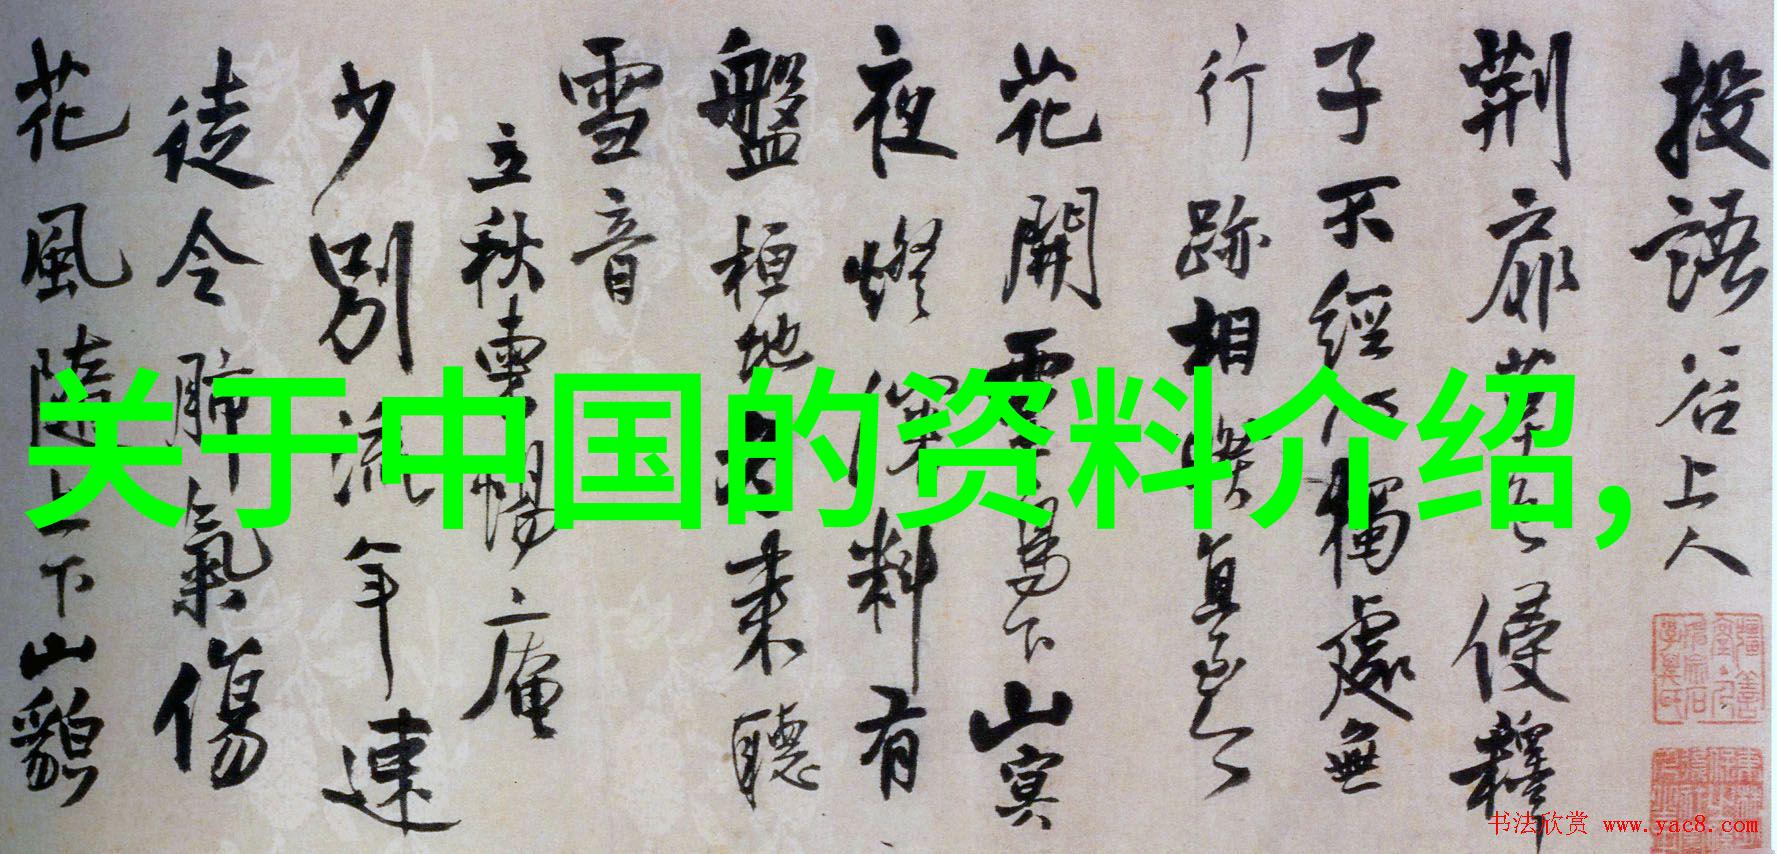 投語谷上人
荆扉草色侵釋
子不經獨處無
行跡相
花開下山
夜燈料有
盤桓地來聽
雪音
立秋庵
少別流年速
徒令肺氣傷
花風隨上下山貌
关于中国的资料介绍,
书法欣赏 www.yac8.com